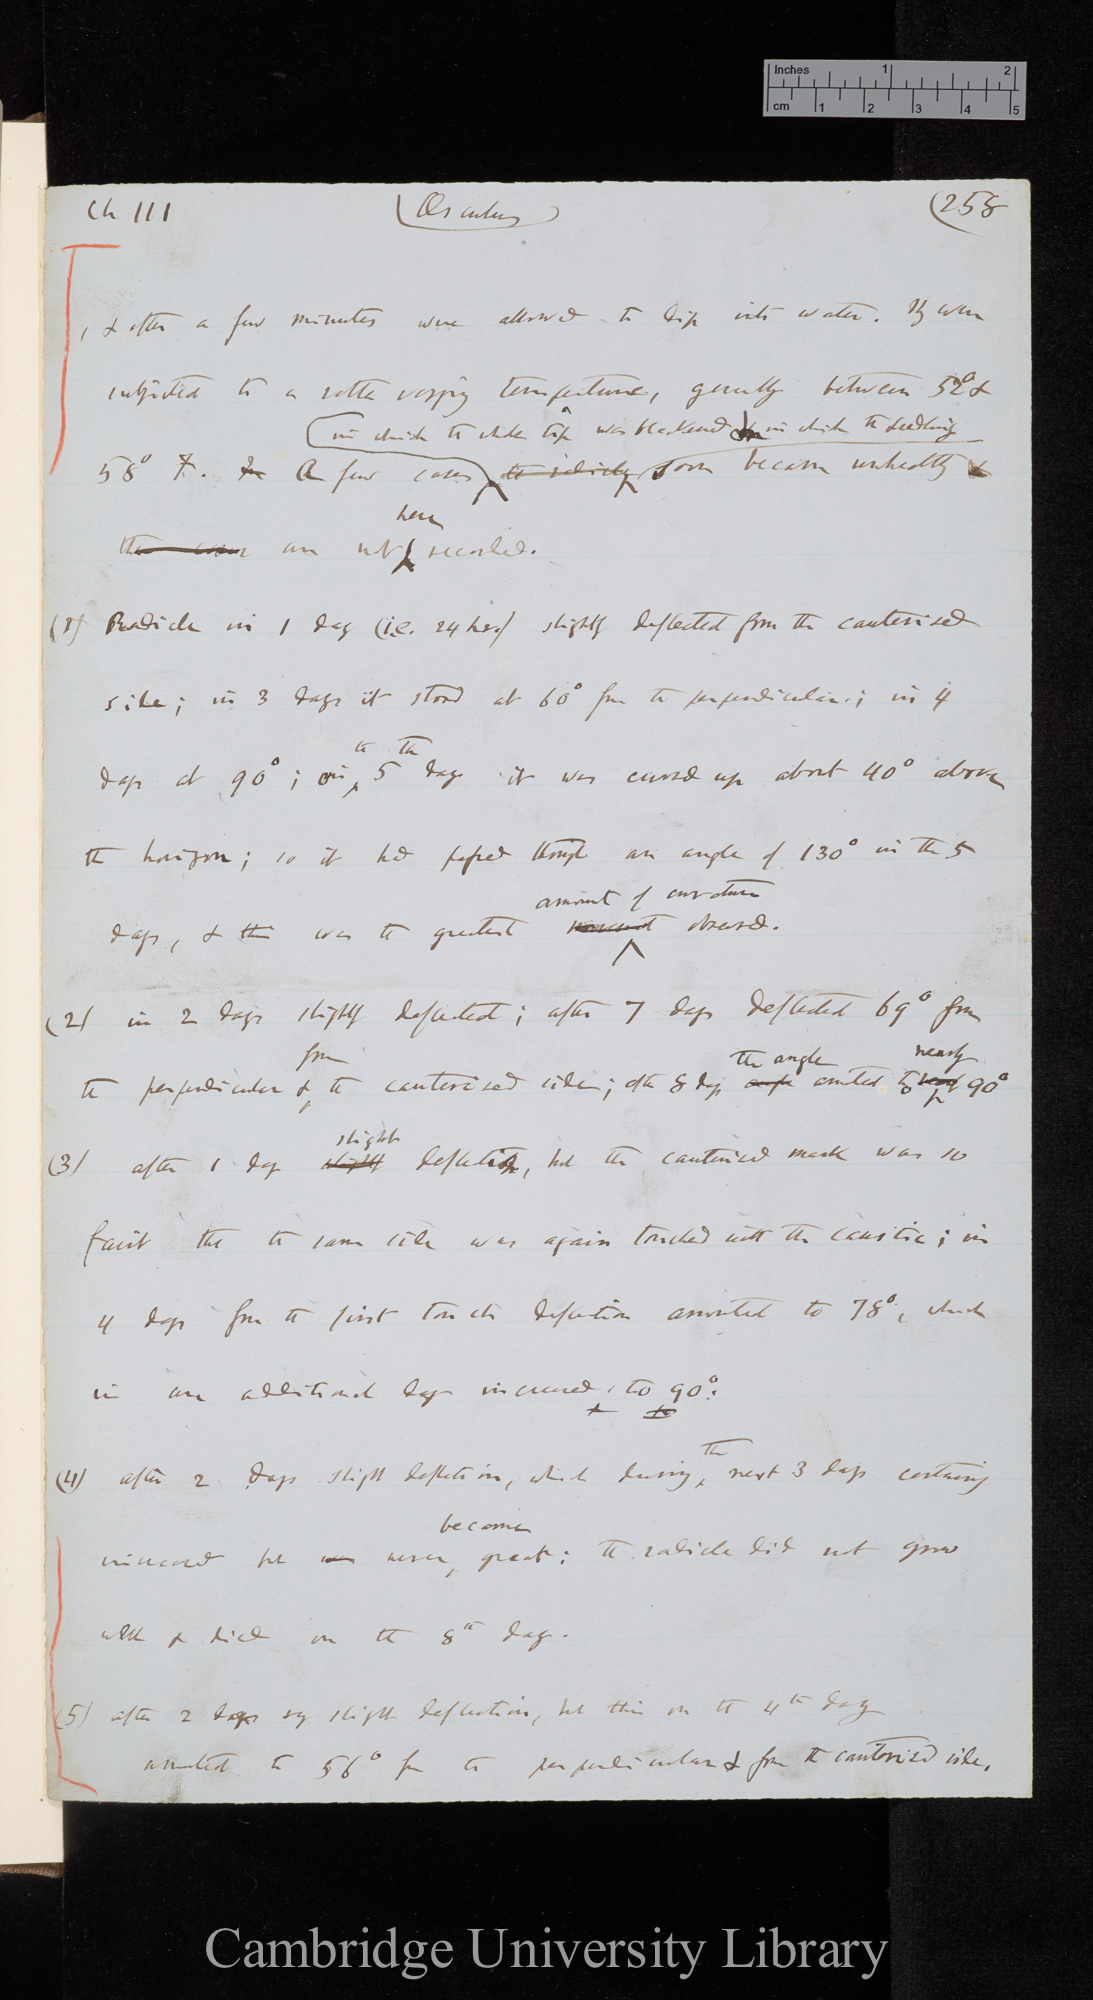 Inches 1 2
cm 1 2 3 4 5
Ch III
(258
& after a few minutes were allowed to dip into water. They were
subjected to a rather varying temperature, generally between 52° &
in which the whole tip was blackened or in which the seedling
58° F. In A few cases the radicle soon became unhealthy &
here
the cases are not recorded.
(1) Radicle in 1 day (i.e. 24 hrs) slightly deflected from the cauterised
side; in 3 days it stood at 60° from the perpendicular; in 4
the th
days at 90°; on 5 day it was curved up about 40° above
the horizon; so it had passed through an angle of 130° in the 5
amount of curvature
days, & this was the greatest movement observed.
(2) in 2 days slightly deflected; after 7 days deflected 69° from
from the angle nearly
the perpendicular & the cauterised side; after 8 days angle amounted to nearly 90°
slight
(3) after 1 day slightly deflection, but the cauterised mark was so
faint that the same side was again touched with the caustic; in
4 days from the first touch deflection amounted to 78°, which
in an additional day increased to 90°.
the
(4) after 2 days slight deflection, which during next 3 days certainly
became
increased but was never great; the radicle did not grow
well & died on the 8th day.
(5) after 2 days very slight deflection, but this on the 4th day
amounted to 56° from the perpendicular & from the cauterised side.
Cambridge University Library